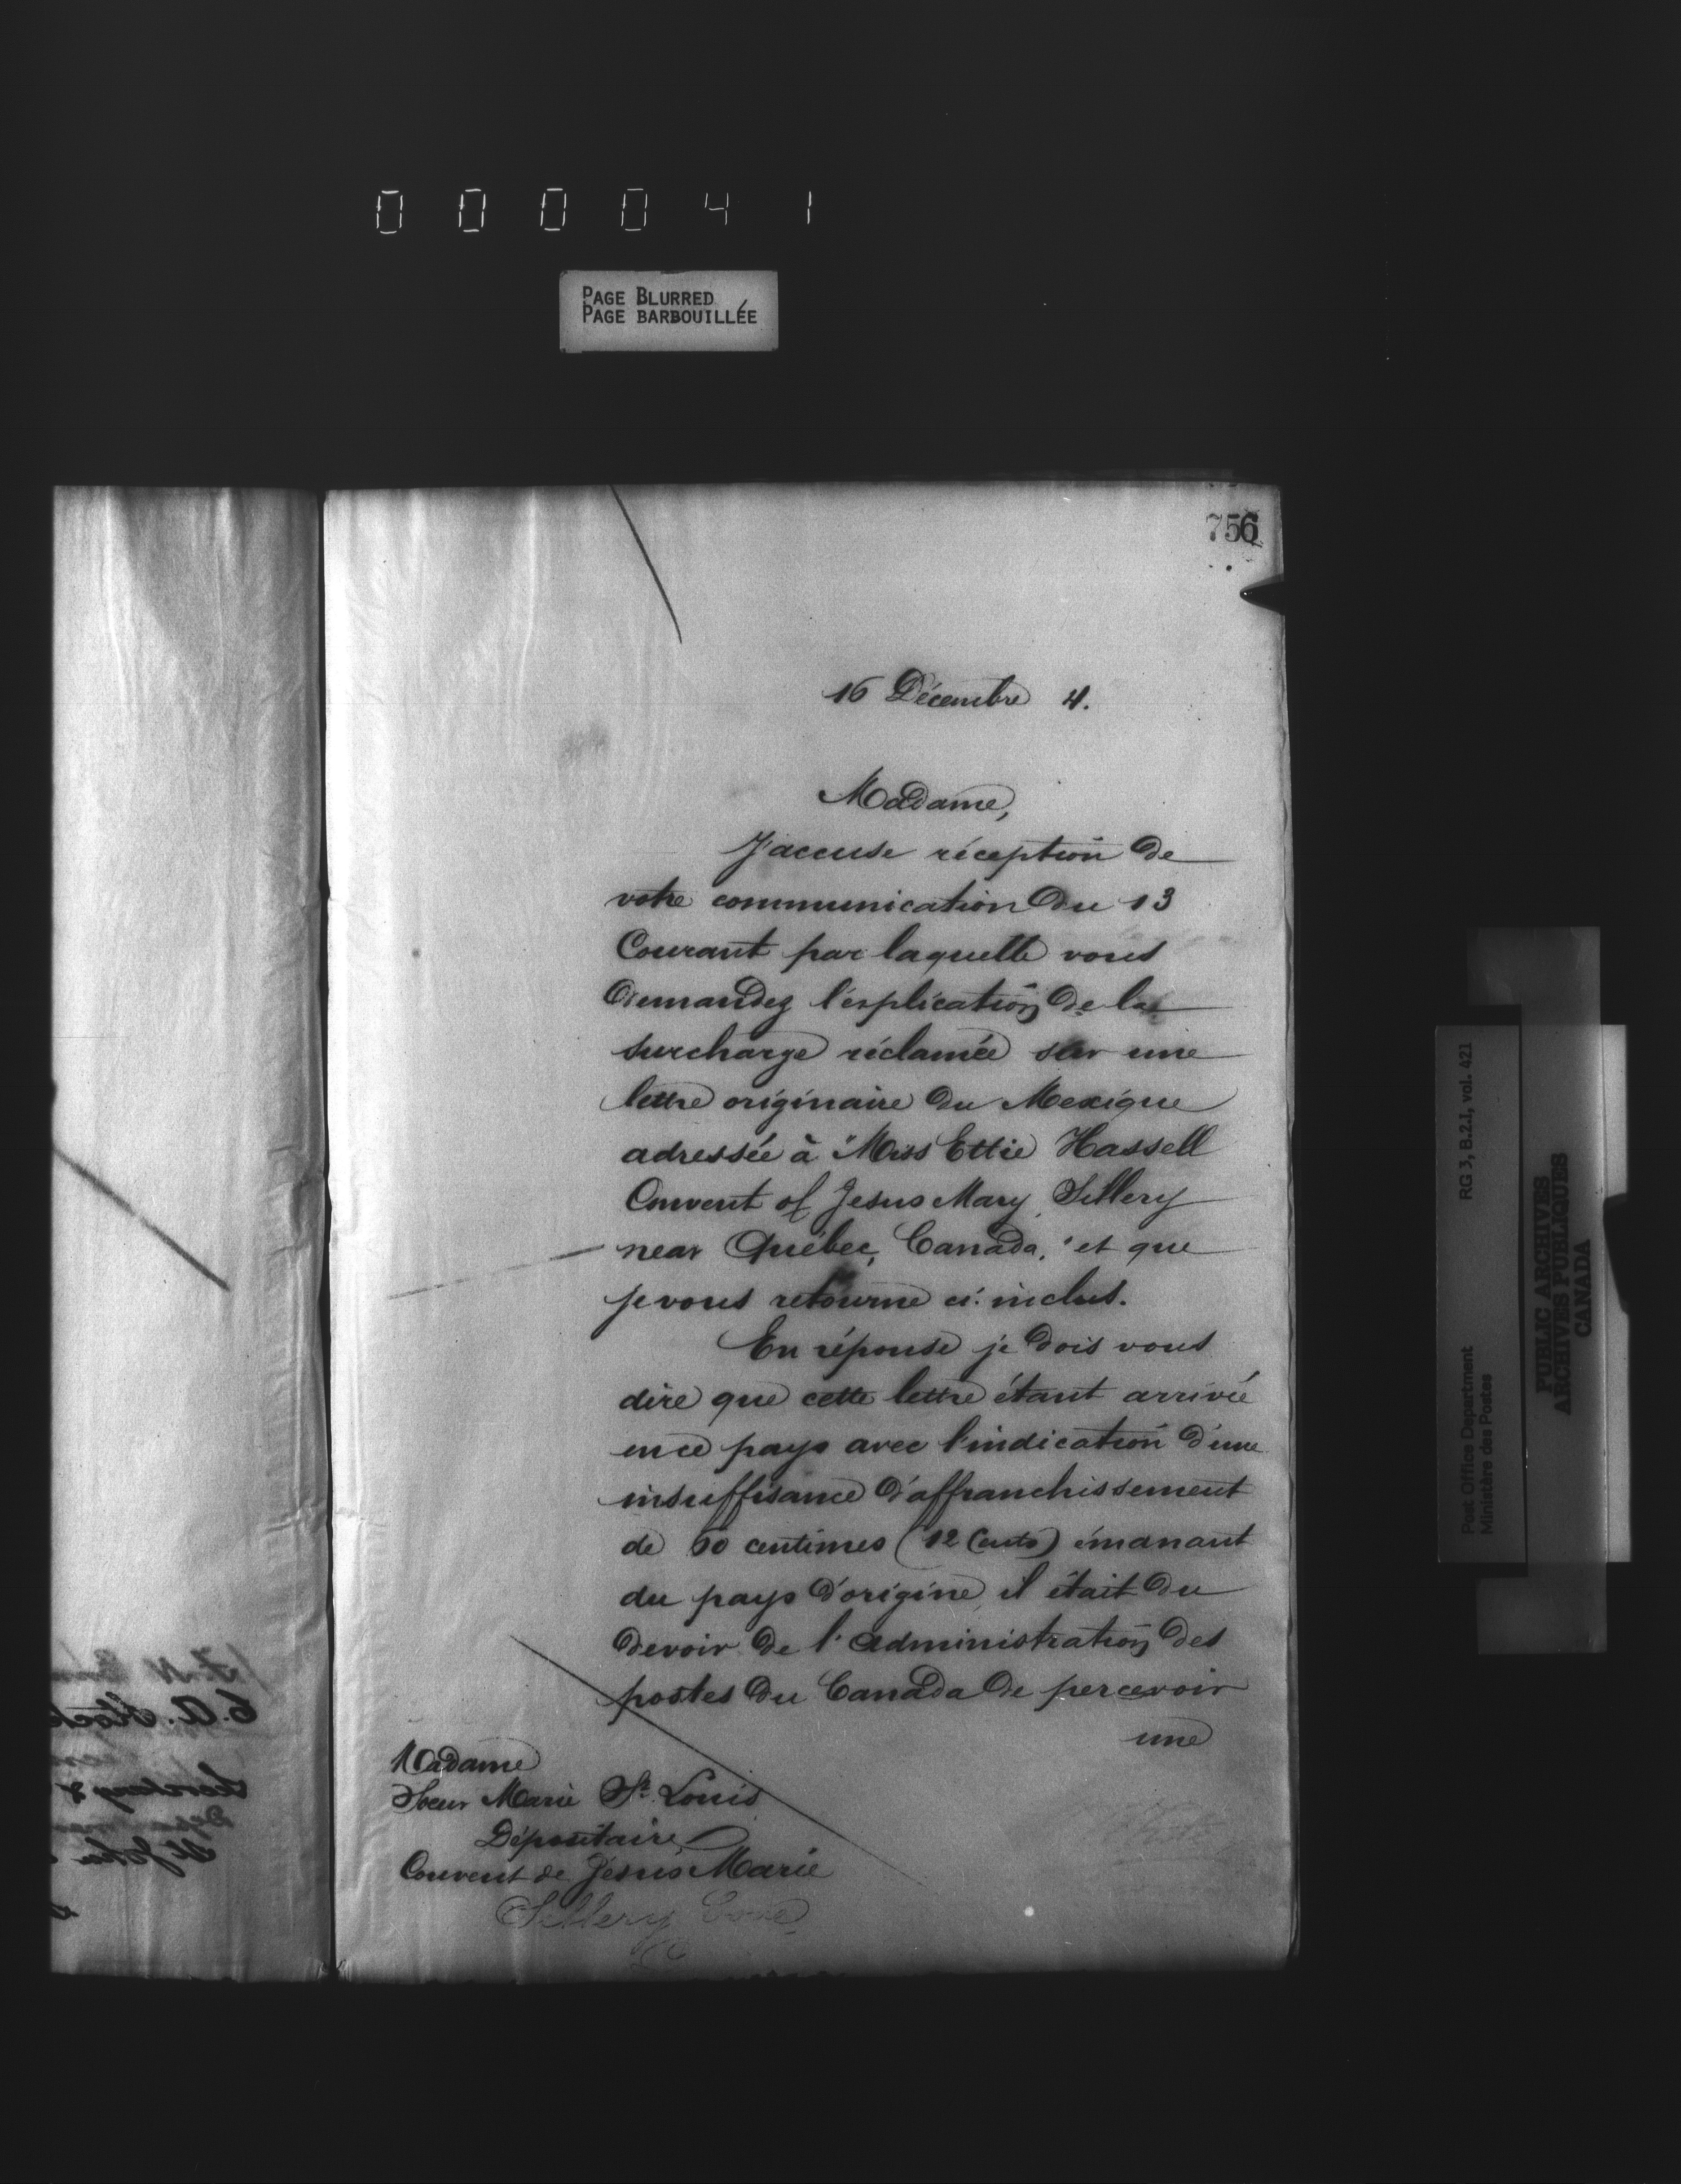 000041
PAGE BLURRED
PAGE BARBOUILLÉE
756
16 Décembre 4.
Madame,
J'accuse réception de
votre communication du 13
Courant par laquelle vous
demandez l'explication de la
surcharge réclamée sur une
lettre originaire du Mexique
adressée à "Miss Ettie Hassell
Convent of Jesus Mary, Sillery
near Québec, Canada," et que
je vous retourne ci-inclus.
En réponse je dois vous
dire que cette lettre étant arrivée
en ce pays avec l'indication d'une
insuffisance d'affranchissement
de 60 centimes (12 Cents) émanant
du pays d'origine, il était du
devoir de l'administration des
postes du Canada de percevoir
une
Madame
Soeur Marie St. Louis
Dépositaire
Couvent de Jésus Marie
Sillery Cove
E. A. Stock
Secretary
St John
RG 3, B.2.1, vol. 421
Post Office Department
Ministère des Postes
PUBLIC ARCHIVES
ARCHIVES PUBLIQUES
CANADA